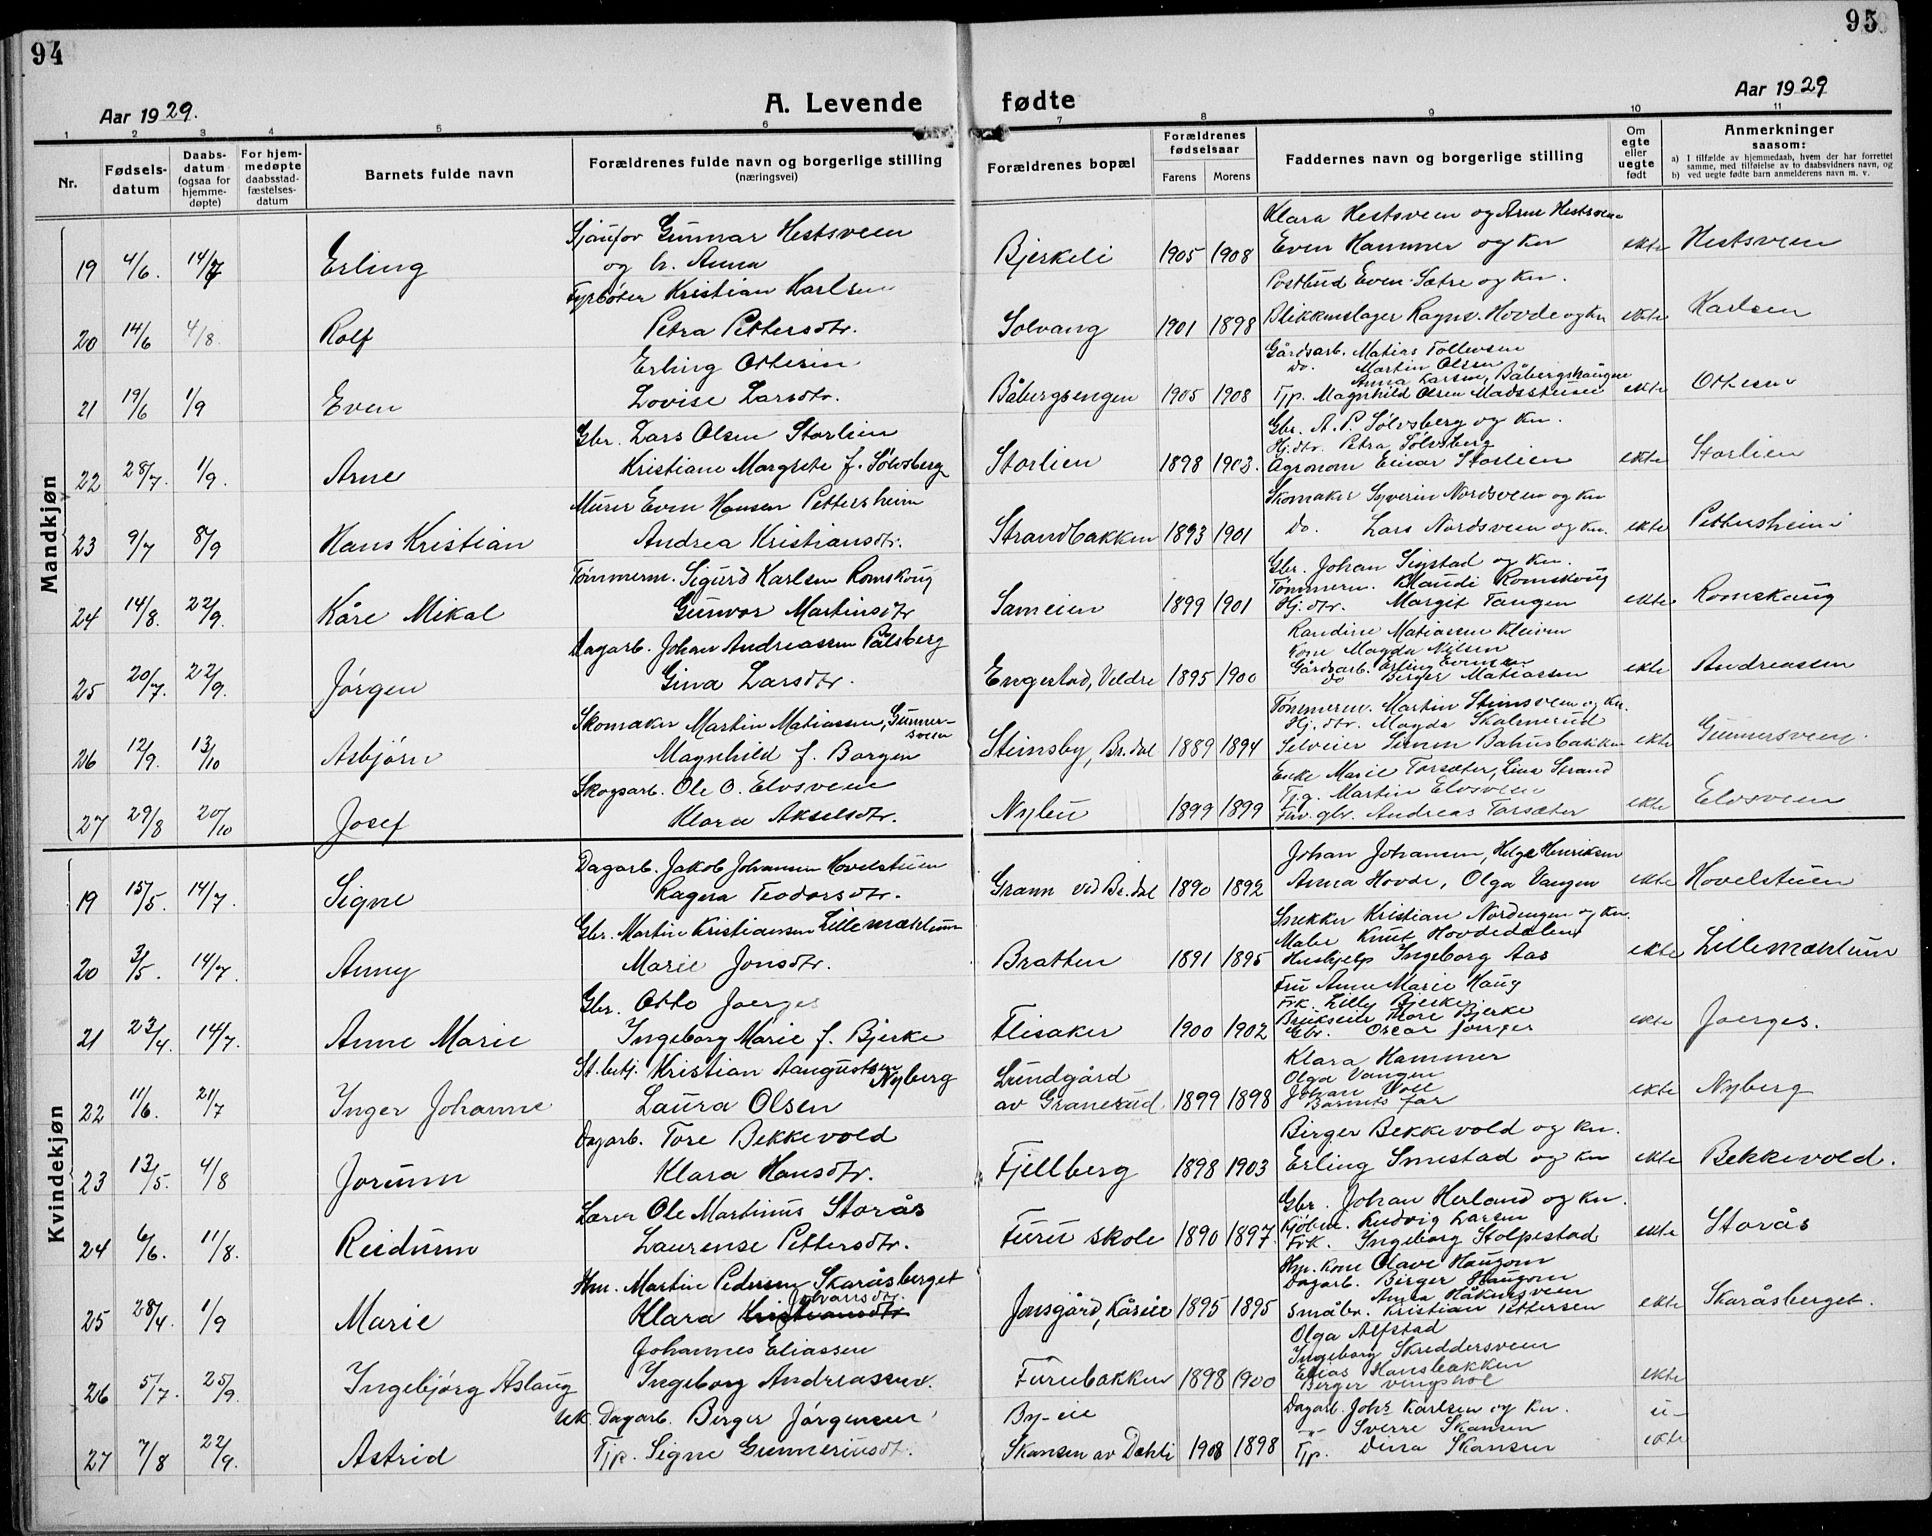 94
95
Aar 1929.
A. Levende fødte
Aar 1929
1 2 3 4 5 6 7 8 9 10 11
Nr.
Fødsels-
datum
Daabs-
datum
(ogsaa for
hjemme-
døpte)
For hjem-
medøpte
daabsstad-
fæstelses-
datum
Barnets fulde navn
Forældrenes fulde navn og borgerlige stilling
(næringsvei)
Forældrenes bopæl
Forældrenes
fødselsaar
Farens Morens
Faddernes navn og borgerlige stilling
Om
egte
eller
uegte
født
Anmerkninger
saasom:
a) I tilfælde av hjemmedaab, hvem der har forrettet
samme, med tilføielse av to daabsvidners navn, og
b) ved uegte fødte barn anmelderens navn m. v.
Mandkjøn
Sjaufør Gunnar Hestsveen Klara Hestsveen og Arne Hestsveen
19 4/6. 14/7 Erling og h. Anna Bjerkeli 1905 1908 Even Hammer og kn ekte Hestsveen
Fyrbøter Kristian Karlsen Postbud Even Sætre og kn.
20 14/6 4/8. Rolf Petra Pettersdtr. Solvang 1901 1898 Blikkenslager Ragnv. Hovde og kn ekte Karlsen
Erling Ottesen Gårdsarb. Matias Tollevsen
do. Martin Olsen
Anna Larsen, Båbergshaugen
21 19/6 1/9 Even Lovise Larsdtr. Båbergsengen 1905 1908 Tjp. Magnhild Olsen Madsstuen ekte Ottesen
Gbr. Lars Olsen Storlien Gbr. A. P. Sølvsberg og kn.
Hj.dtr. Petra Sølvsberg
22 28/7. 1/9. Arne Kristiane Margrete f. Sølvsberg Storlien 1898 1903. Agronom Einar Storlien ekte Storlien
Murer Even Hansen Pettersheim Skomaker Syverin Nordsveen og kn
23 9/7 8/9 Hans Kristian Andrea Kristiansdtr. Strandbakken 1893 1901 do. Lars Nordsveen og kn. ekte Pettersheim
Tømmerm. Sigurd Karlsen Romskoug Gbr. Johan Sigstad og kn.
Tømmerm. Klaudi Romskoug
24 14/8. 22/9. Kåre Mikal Gunvor Martinsdtr Sameien 1899 1901 Hj.dtr. Margit Tangen ekte Romskoug
Dagarb. Johan Andreassen Pålsberg Randine Matiassen Kleiven
Kone Magda Nilsen
Gårdsarb. Erling Evensen
25 20/7. 22/9. Jørgen Gina Larsdtr. Engestad, Veldre 1895 1900 do Berger Matiassen ekte Andreassen
Skomaker Martin Matiassen, Gunner-
sveen Tømmerm. Martin Steinsveen og kn.
Hj.dtr. Magda Skolmerud
26 12/9. 13/10 Asbjørn Magnhild f. Borgen Steinsby, Br.dal 1889 1894 Selveier Simen Bahusbakken ekte Gunnersveen.
Skogsarb. Ole O. Elvsveen Enke Marie Torsæter, Lina Strand
Tjg. Martin Elvsveen
27 29/8 20/10 Josef Klara Akselsdtr. Nyleu 1899 1899 Fhv. gbr. Andreas Torsæter ekte Elvsveen
Kvindekjøn
Dagarb. Jakob Johansen Hovelstuen Johan Johansen, Helge Henriksen
19 15/5. 14/7. Signe Ragna Teodorsdtr. Grann ved Br.dal 1890 1892 Anna Hovde, Olga Vangen ekte Hovelstuen
Gbr. Martin Kristiansen Lillemæhlum Snekker Kristian Nordengen og kn.
Maler Knut Hovdedalen
20 3/5. 14/7. Anny Marie Jonsdtr. Bratten 1891 1895 Hushjelp Ingeborg Aas ekte Lillemæhlum
Gbr. Otto Joerges Fru Anne Marie Haug
Frk. Lilly Bjerke
Brukseier Tore Bjerke
21 23/4. 14/7. Anne Marie Ingeborg Marie f. Bjerke Flisaker 1900 1902 Gbr. Oscar Joerges ekte Joerges.
St.betj. Kristian Aaugustsen Nyberg Lundgård Klara Hammer
Olga Vangen
Johan Voll
22 11/6. 21/7 Inger Johanne Laura Olsen av Granerud 1899 1898 Barnets far ekte Nyberg
Dagarb. Tore Bekkevold Birger Bekkevold og kn.
23 13/5. 4/8 Jorunn Klara Hansdtr. Fjellberg 1898 1903 Erling Smestad og kn ekte Bekkevold.
Lærer Ole Martinus Storås Gbr. Johan Herland og kn.
Kjøbm. Ludvig Larsen
24 6/6. 11/8. Reidunn Laurense Pettersdtr. Furu skole 1890 1897. Frk. Ingeborg Stolpestad ekte Storås
Hm. Martin Pedersen Skaråsberget Hm. kone Olave Haugom
Dagarb. Birger Haugom
Johansdtr. Anna Håkensveen
25 28/4. 1/9 Marie Klara Kristiansdtr Jonsgård, Kåseie 1895 1895 Småbr. Kristian Pettersen ekte Skaråsberget.
Johannes Eliassen Olga Alfstad
Ingeborg Skreddersveen
Elias Hansbakken
26 5/7. 25/9. Ingebjørg Åslaug Ingeborg Andreassen. Furubakken 1898 1900 Berger Vingshol ekte
Uk. Dagarb. Birger Jørgensen By-eie Dagarb. Johs Karlsen og kn. u-
-"- Sverre Skansen
27 7/8 22/9. Astrid Tjp. Signe Gunneriusdt. Skansen av Dæhli 1908 1898 Tjp. Dina Skansen ekte